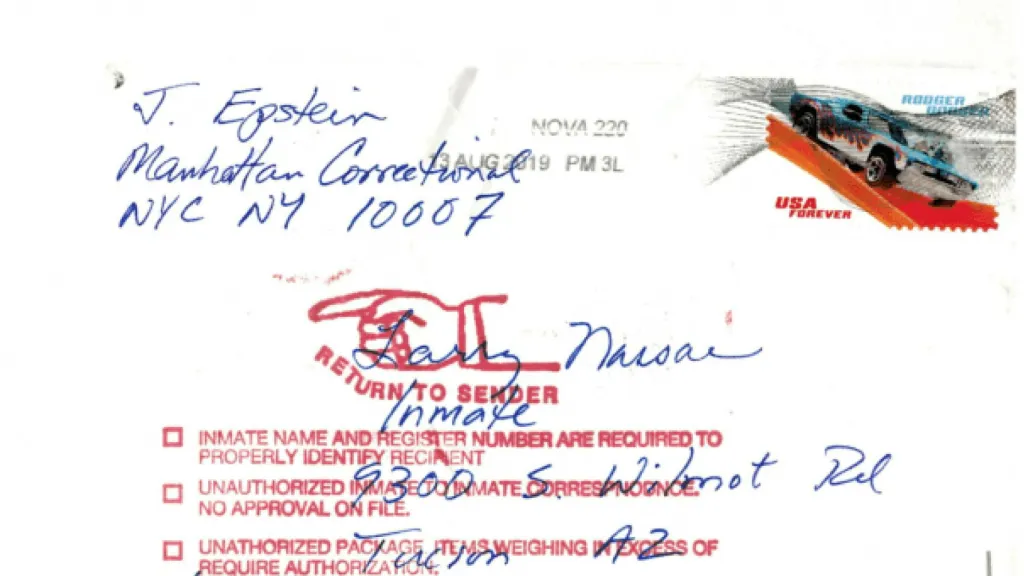 J. Epstein
Manhattan Correctional
NYC NY 10007
NOVA 220
13 AUG 2019 PM 3L
RODGER DODGER
USA
FOREVER
Larry Nassar
RETURN TO SENDER
Inmate
INMATE NAME AND REGISTER NUMBER ARE REQUIRED TO
PROPERLY IDENTIFY RECIPIENT
9300 S. Wilmot Rd
UNAUTHORIZED INMATE TO INMATE CORRESPONDNCE.
NO APPROVAL ON FILE.
Tucson AZ
UNATHORIZED PACKAGE, ITEMS WEIGHING IN EXCESS OF
REQUIRE AUTHORIZATION.